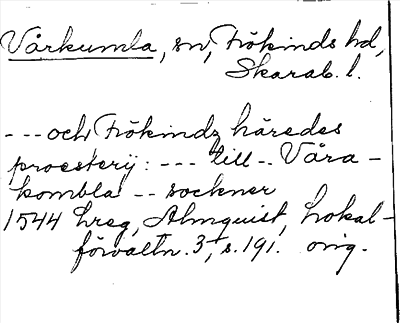 Vårkumla, sn, Frökinds hd,
Skarab. l.
--- och Frökindz häredes
proesterij: --- till -- Våra-
kombla -- sockner
1544 hreg, Almquist, Lokal-
förvaltn. 3, s. 191. orig.